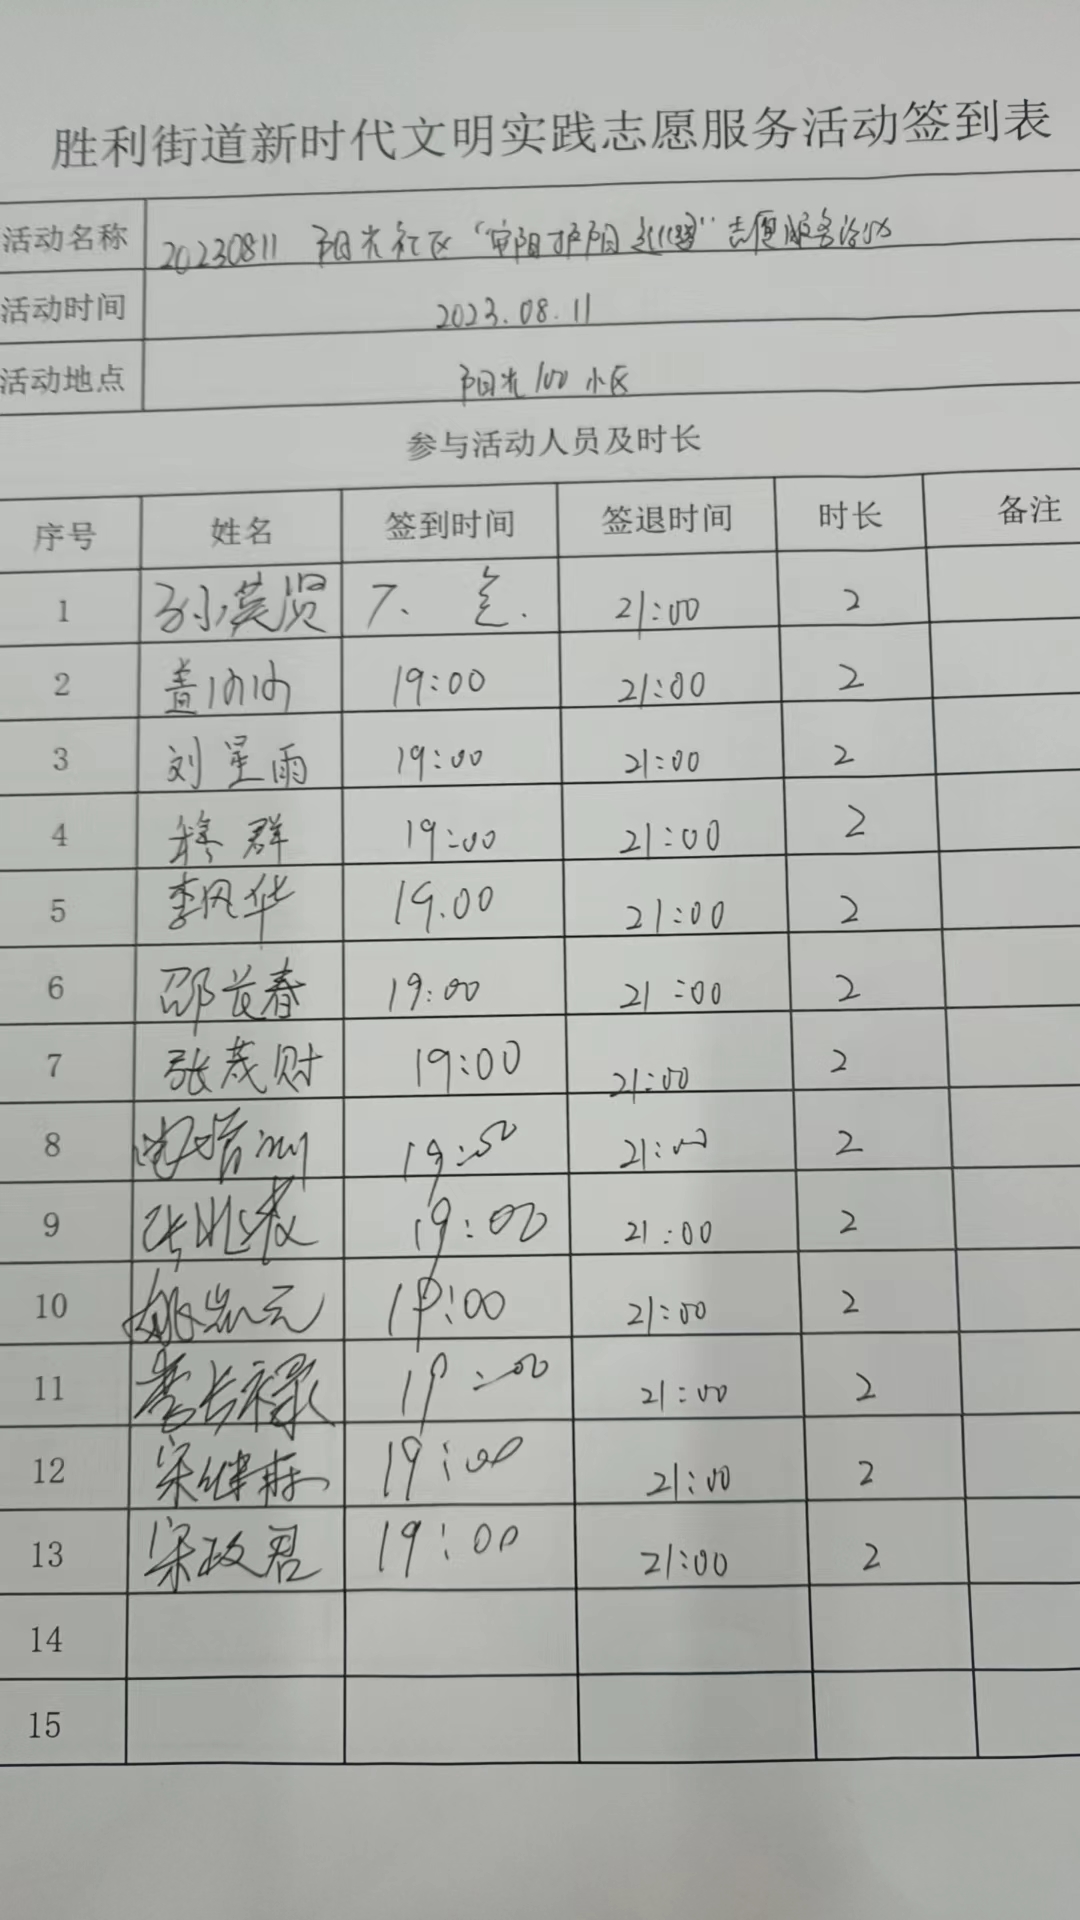 胜利街道新时代文明实践志愿服务活动签到表
活动名称 20230811 阳光社区 志愿服务活动
活动时间 2023.08.11
活动地点 阳光100小区
参与活动人员及时长
序号 姓名 签到时间 签退时间 时长 备注
1 孙英贤 21:00 2
2 盖 19:00 21:00 2
3 刘星雨 19:00 21:00 2
4 穆群 19:00 21:00 2
5 李风华 19.00 21:00 2
6 邵长春 19:00 21:00 2
7 张茂财 19:00 21:00 2
8 19:00 21:00 2
9 张 19:00 21:00 2
10 姚 元 19:00 21:00 2
11 长禄 19:00 21:00 2
12 宋继 19:00 21:00 2
13 宋政君 19:00 21:00 2
14
15